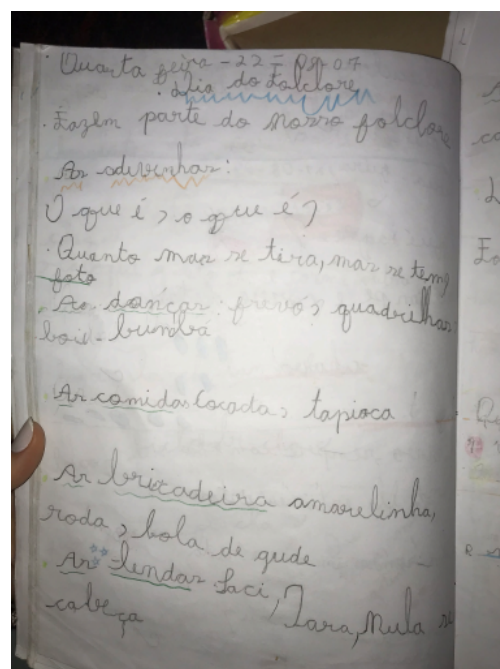 . Quarta feira - 22 =
. Dia do Folclore
. Fazem parte do nosso folclore
As advinhas:
O que é, o que é?
. Quanto mas se tira, mas se tem?
foto
. As danças: frevo, quadrilhas
boi-bumba
As comidas cocada, tapioca
. As bricadeira amarelinha,
roda, bola de gude
. As lendas Saci, Iara, Mula se
cabeça